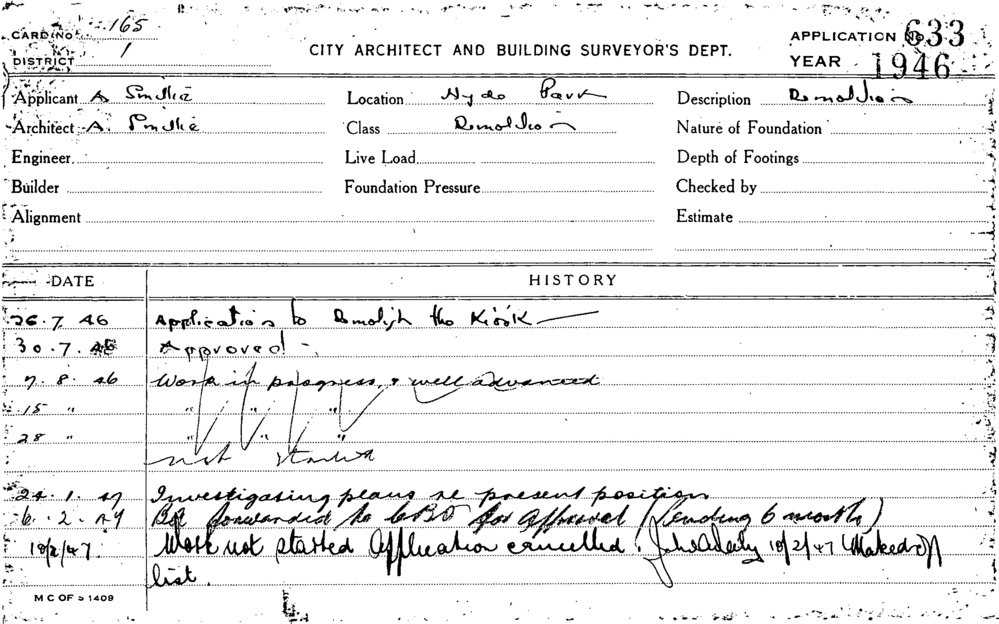 CARD No. 165
DISTRICT 1
CITY ARCHITECT AND BUILDING SURVEYOR'S DEPT.
APPLICATION No 633
YEAR 1946
Applicant A Smikie Location Hyde Park Description Demolition
Architect A. Smikie Class Demolition Nature of Foundation
Engineer Live Load Depth of Footings
Builder Foundation Pressure Checked by
Alignment Estimate
DATE HISTORY
26.7.46 Application to Demolish the Kiosk
30.7.46 Approved
7.8.46 Work in progress, & well advanced
15 " " " "
28 " " " "
not started
24.1.47 Investigating plans re present position
6.2.47 forwarded to for Approval (Pending 6 months)
10/2/47. Work not started Application cancelled. 10/2/47 (Marked off
list.
M C OF S 1409